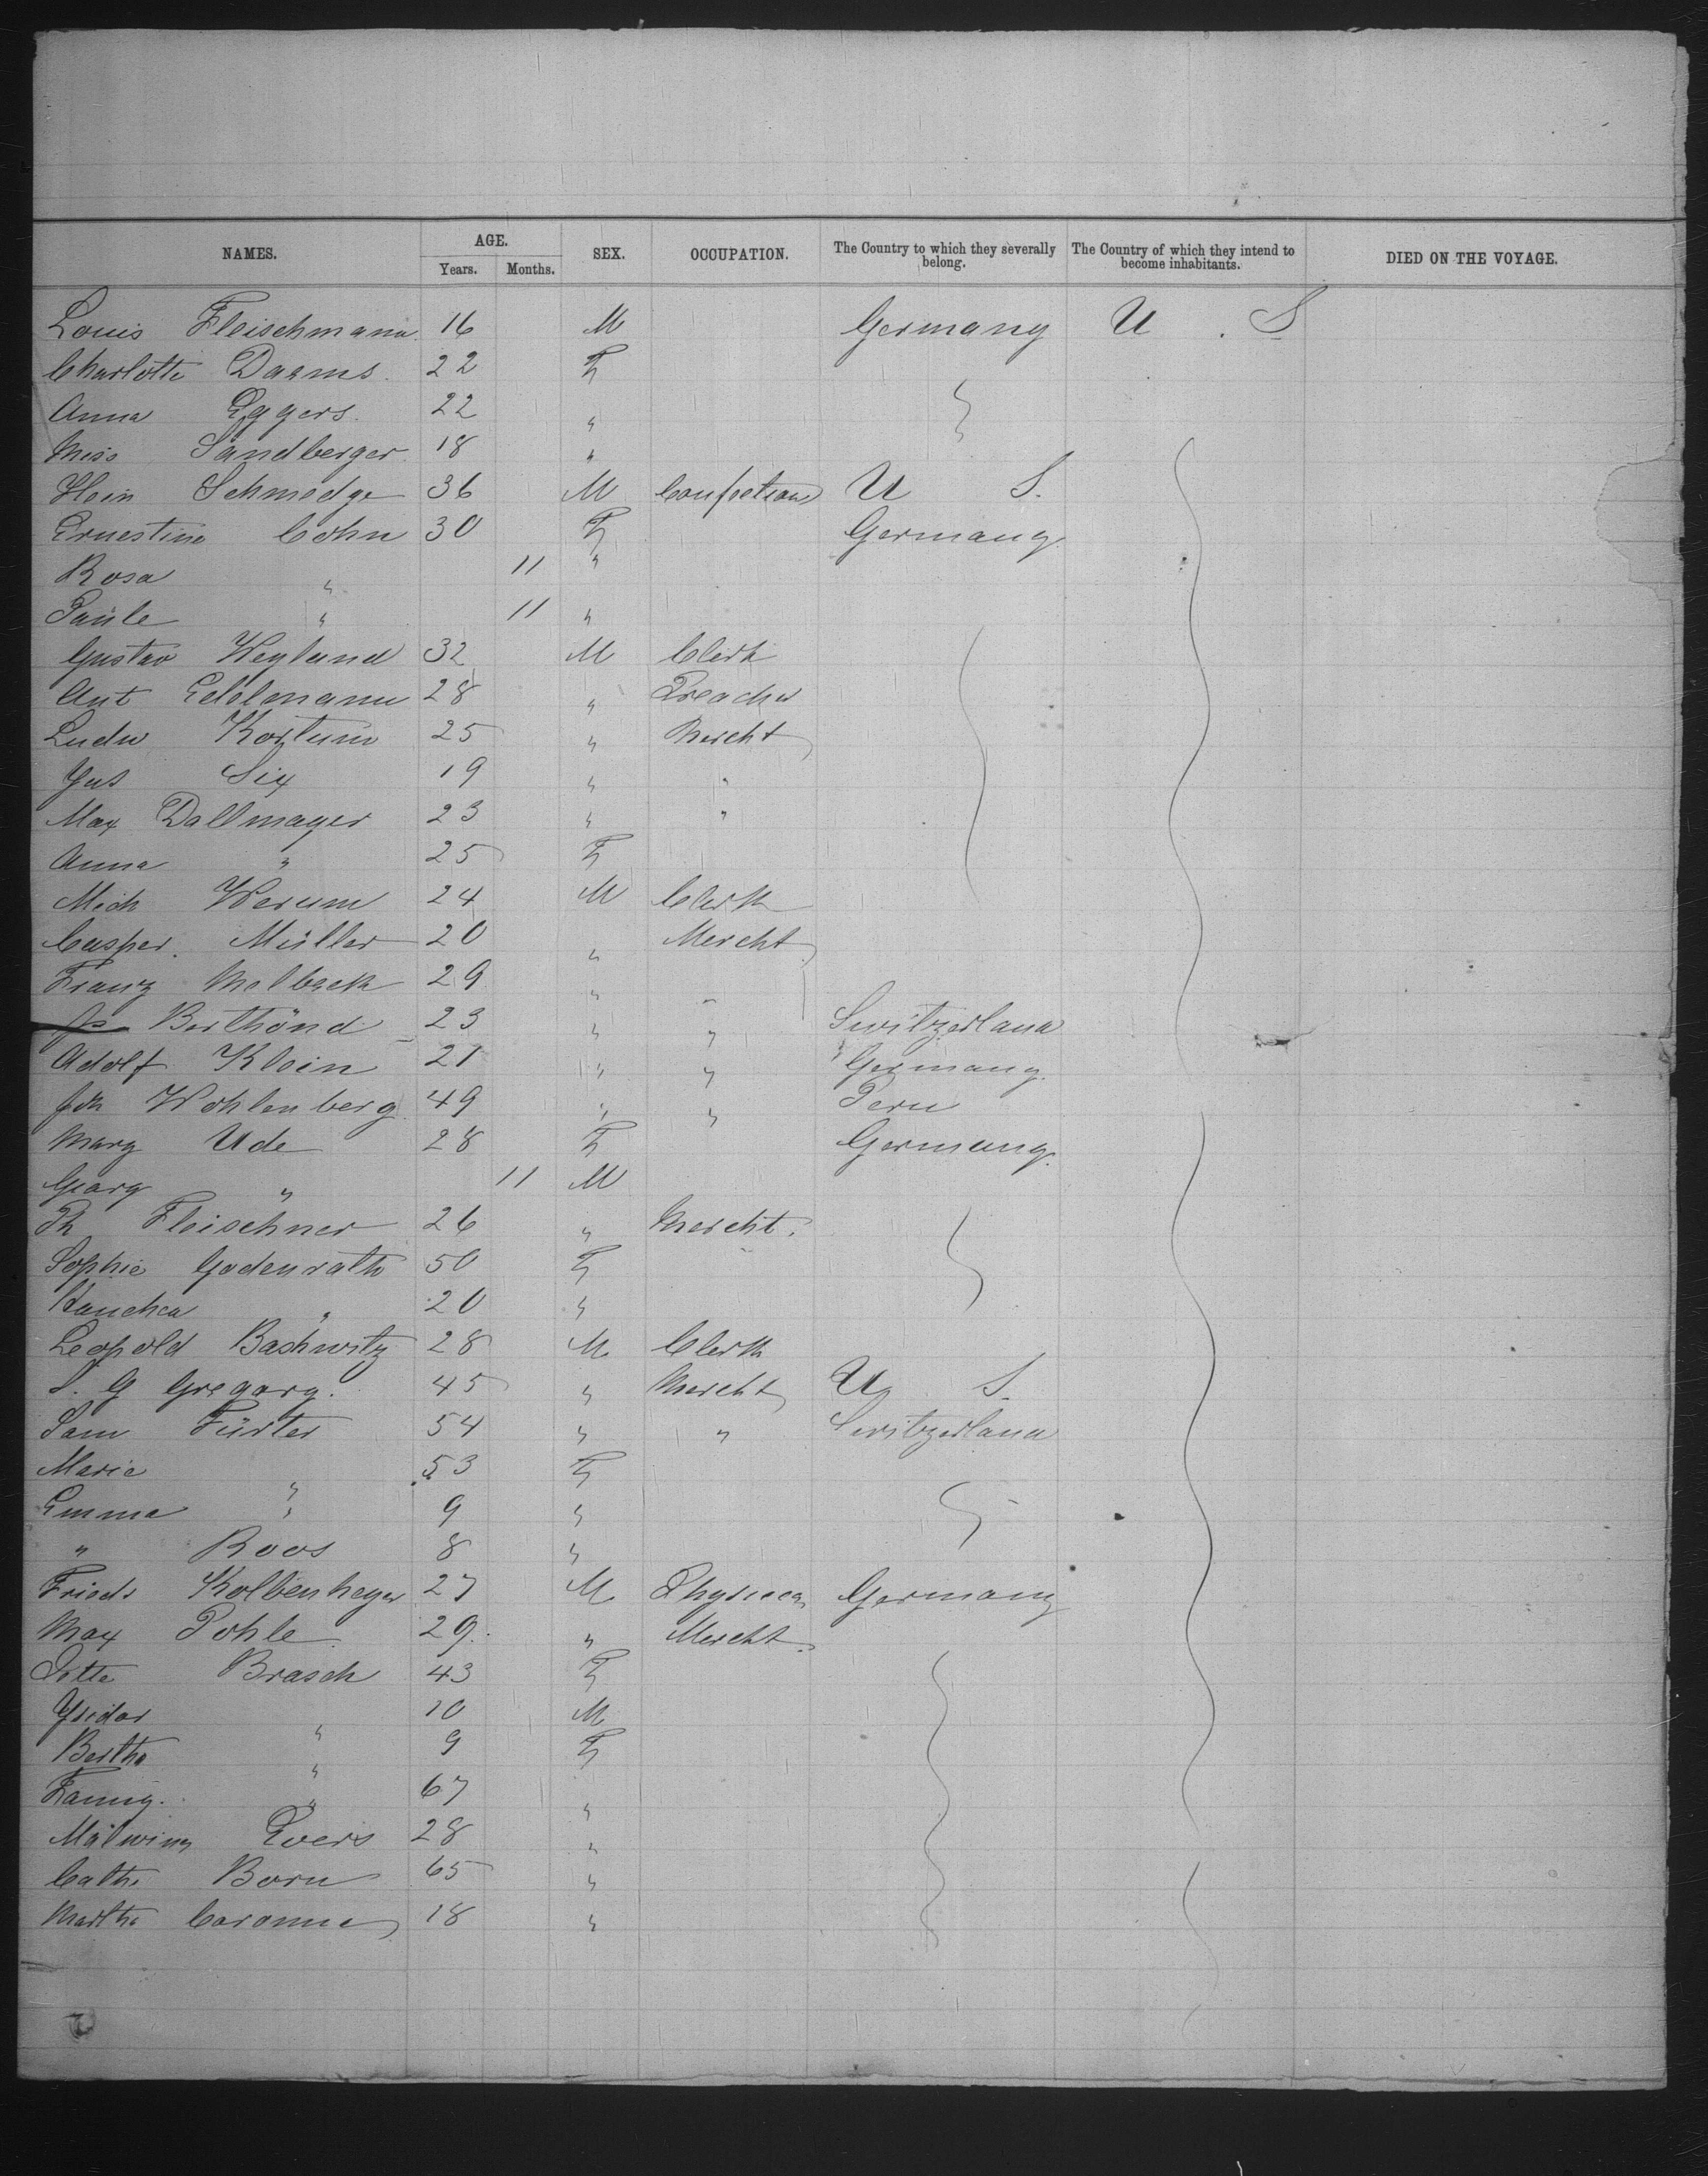 NAMES. AGE. SEX. OCCUPATION. The Country to which they severally belong. The Country of which they intend to become inhabitants. DIED ON THE VOYAGE.
Years. Months.
Louis Fleischmann 16 M Germany U. S
Charlotte Daems. 22 F
Anna Eggers. 22 "
Miss Sandberger 18 "
Hein Schmedge 36 M Confection U S.
Ernestine Cohn 30 F Germany
Rosa " 11 "
Paule " 11 "
Gustav Weyland 32 M Clerk
Ant Edelmann 28 " Preacher
Ludw Kortum 25 " Mercht
Gus Six 19 " "
Max Dallmayer 23 " "
Anna " 25 F
Mich Werum 24 M Clerk
Casper. Müller 20 " Mercht
Franz Melbeck 29 " "
Berthönd 23 " " Switzerland
Adolf Klein 21 " " Germany.
Joh Wohlenberg 49 " " Peru
Marg Ude 28 F Germany.
Georg " 11 M
Th Fleischner 26 " Mercht.
Sophie Godenrath 50 F
" 20 "
Leopold Bashwitz 28 M Clerk
S. G Gregory. 45 " Mercht U S.
Sam Fürter 54 " " Switzerland
Marie " 53 F
Emma " 9 "
" Roos 8 "
Friedr Kolbenheyer 27 M Physican Germany
Max Pohle 29. " Mercht.
Brasch 43 F
Ysidor " 10 M
Bertha " 9 F
Fanny. " 67 "
Malwina Evers 28 "
Cathr Born 65 "
Martha 18 "